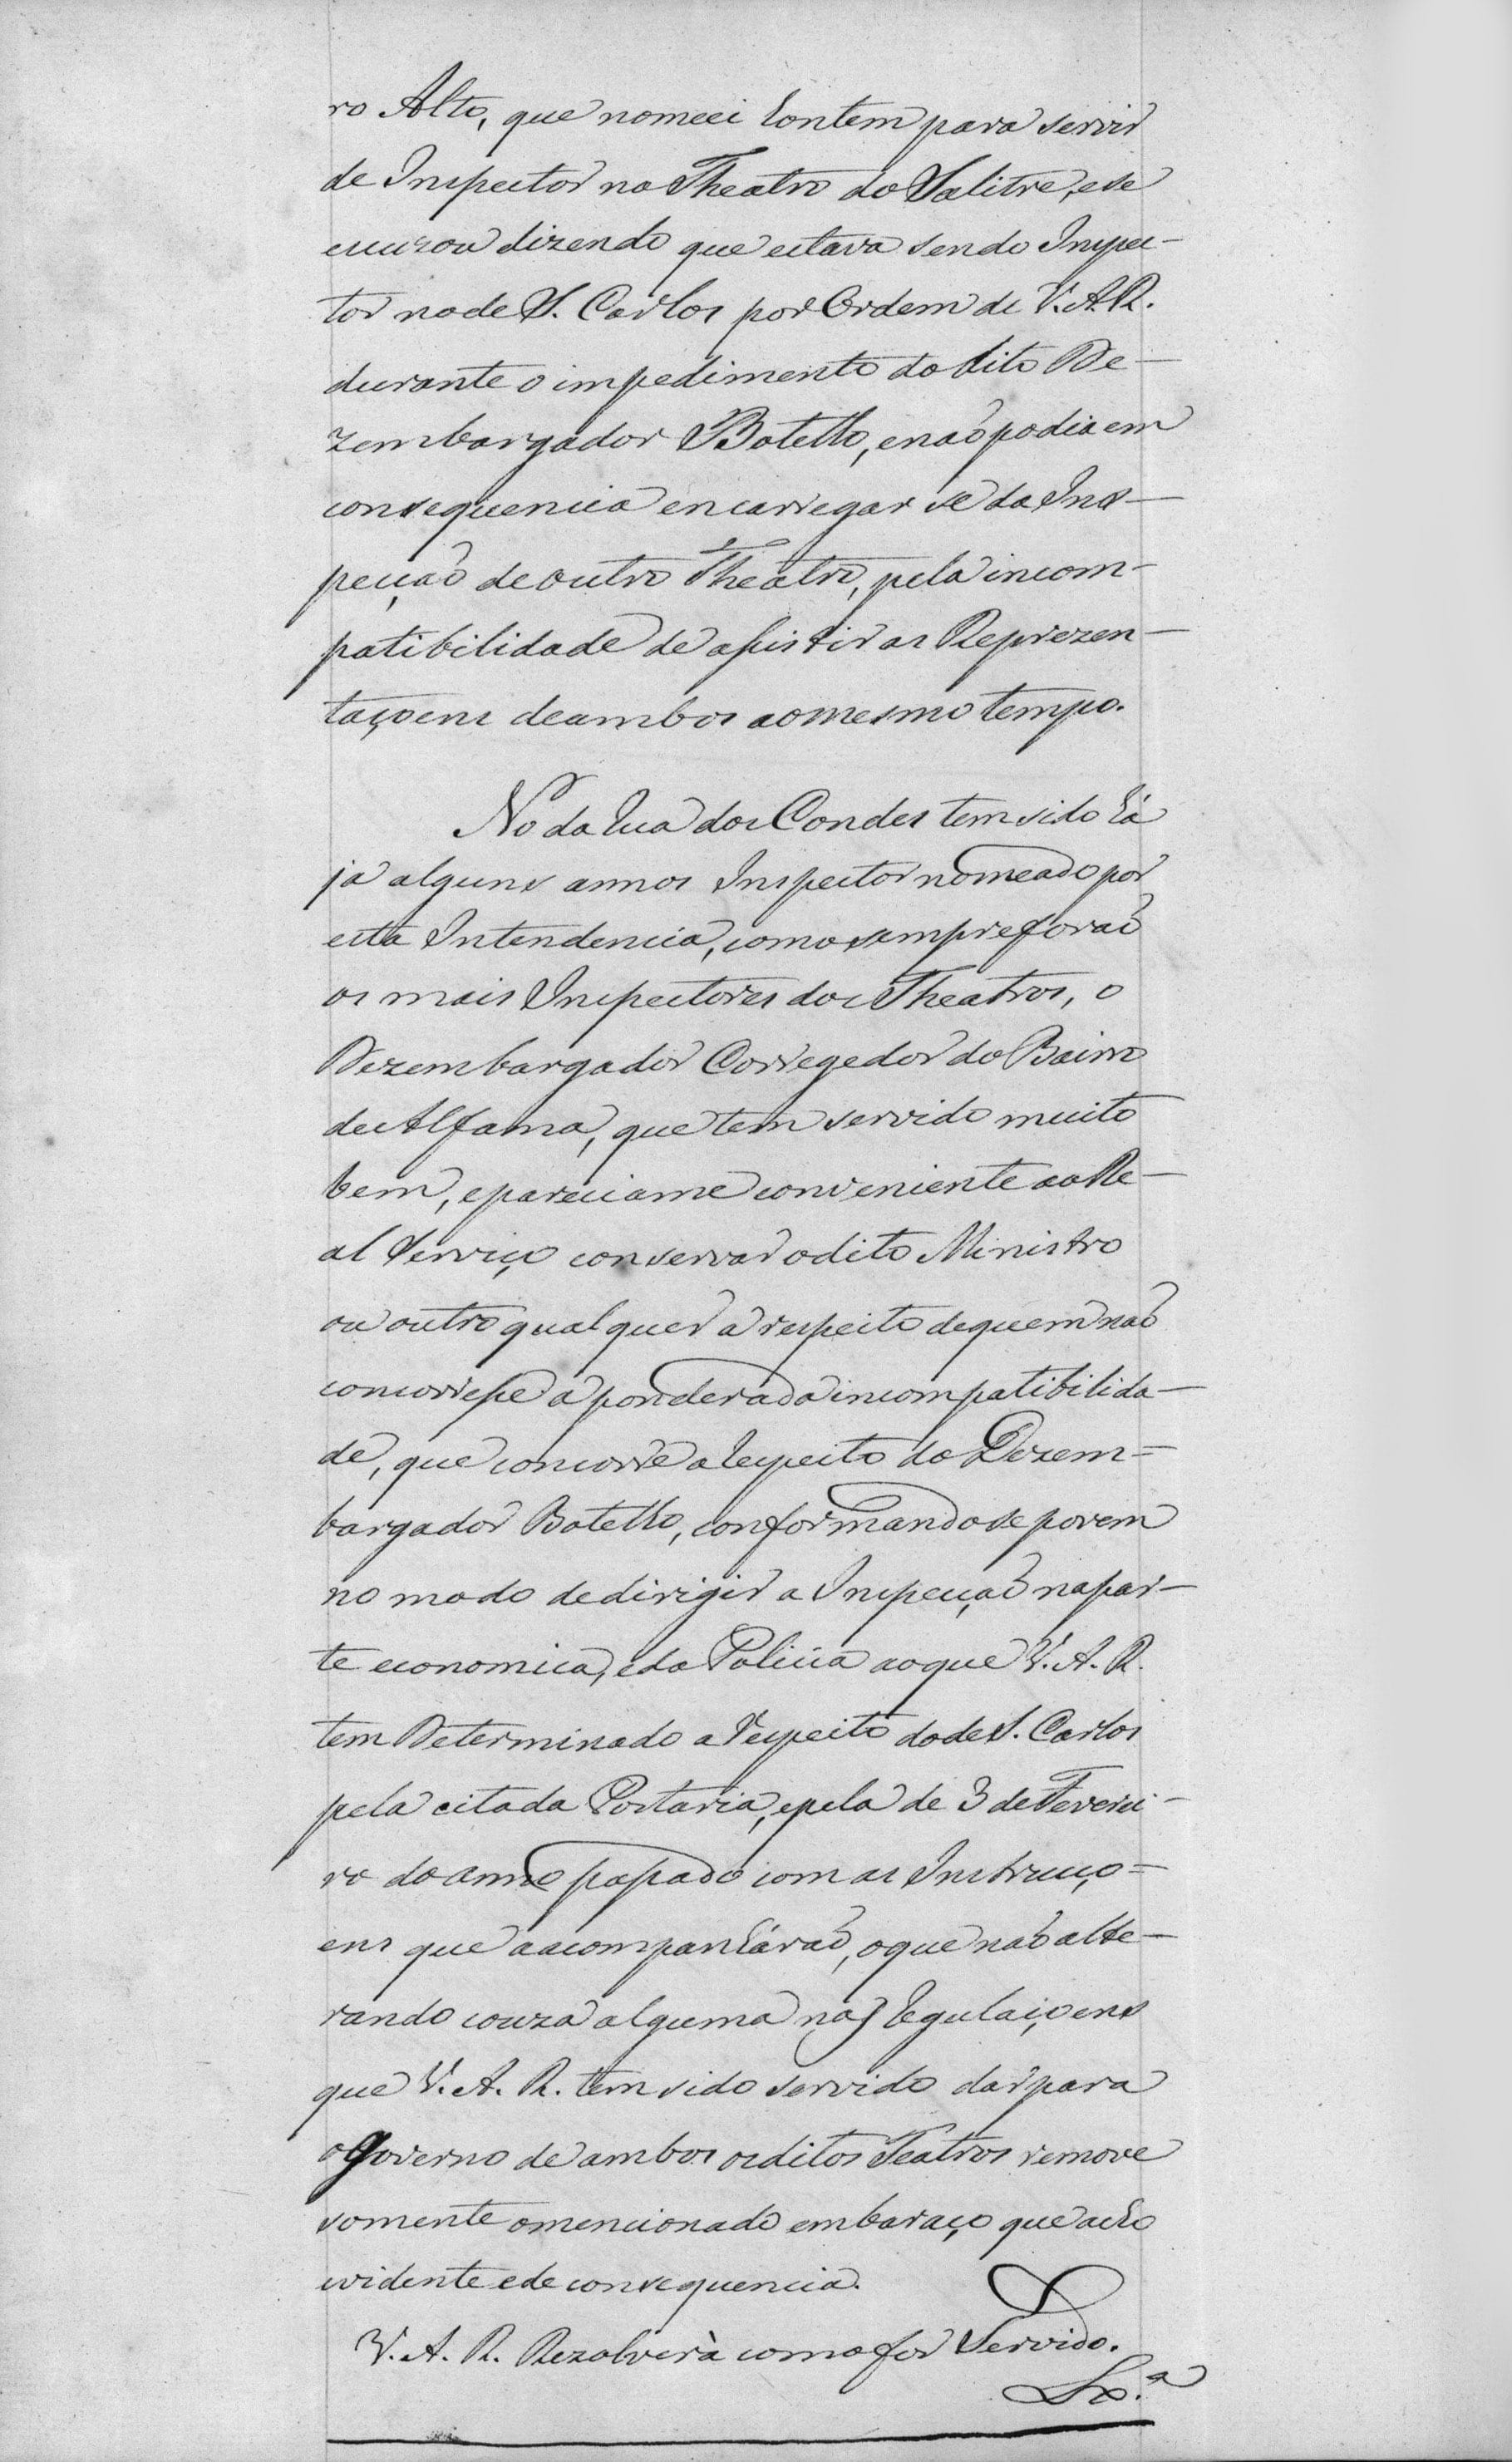 ro Alto, que nomeei hontem para servir
de Inspector no Theatro do Salitre, e se
escuzou dizendo que estava sendo Inspec-
tor no de S. Carlos por Ordem de V. A. R.
durante o impedimento do dito De-
zembargador Botelho, e naõ podia em
consequencia encarregar se da Ins-
pecçaõ de outro Theatro, pela incom-
patibilidade de assistir as Reprezen-
taçoens de ambos ao mesmo tempo.
No da rua dos Condes tem sido há
já alguns annos Inspector nomeado por
esta Intendencia, como sempre foraõ
os mais Inspectores dos Theatros, o
Dezembargador Corregedor do Bairro
de Alfama, que tem servido muito
bem, e pareciame conveniente ao Re-
al Serviço conservar o dito Ministro
ou outro qualquer a respeito de quem naõ
concorresse a ponderada incompatibilida-
de, que concorre a respeito do Dezem=
bargador Botelho, conformando se porem
no modo de dirigir a Inspecçaõ na par-
te economica, e da Policia ao que V. A. R.
tem Determinado a respeito do de S. Carlos
pela citada Portaria, e pela de 3 de Feverei-
ro do anno passado com as Instrucço=
ens que a acompanháraõ, o que naõ alte-
rando couza alguma nas regulaçoens
que V. A. R. tem sido servido dar para
o Governo de ambos os ditos Teatros remove
somente o mencionado embaraço que acho
evidente e de consequencia.
V. A. R. Rezolverà como for Servido.
Lx.ª